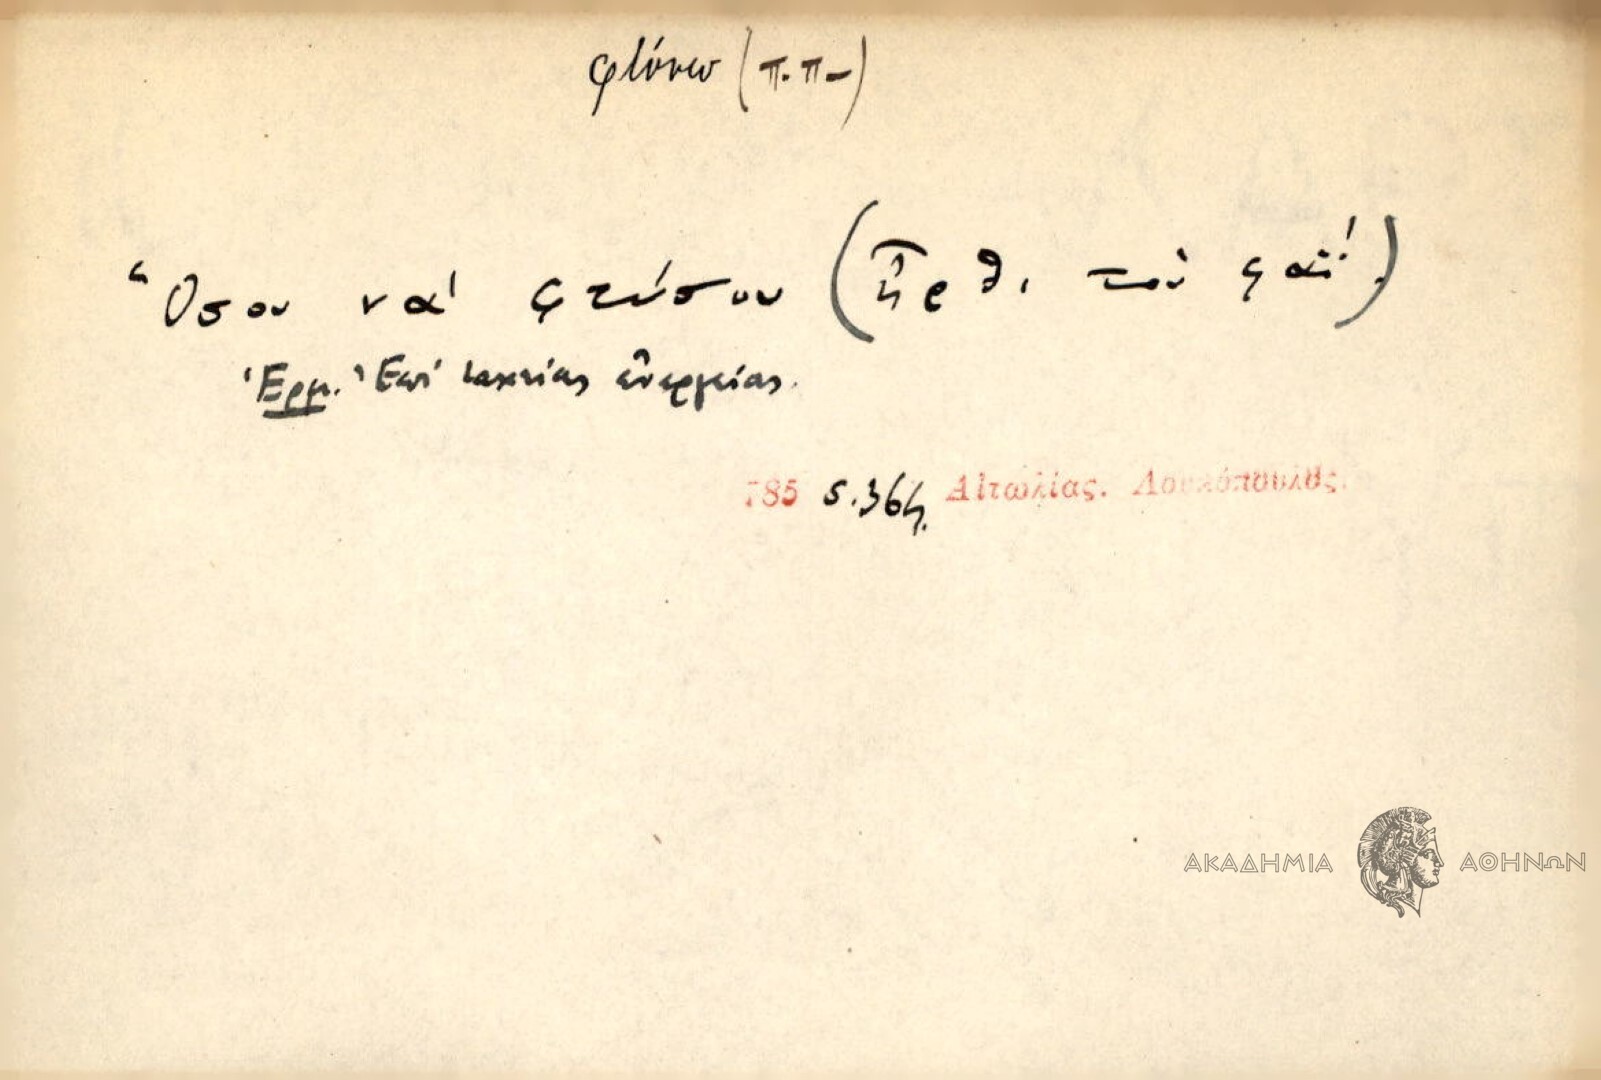 φτύνω (π.π-)
Ὅσου νὰ φτύσου (ἦρθι τοὺ φαΐ.)
Ἑρμ. Ἐπὶ ταχείας ἐνεργείας.
785 σ.364. Αἰτωλίας. Λουκόπουλος.
ΑΚΑΔΗΜΙΑ ΑΘΗΝΩΝ